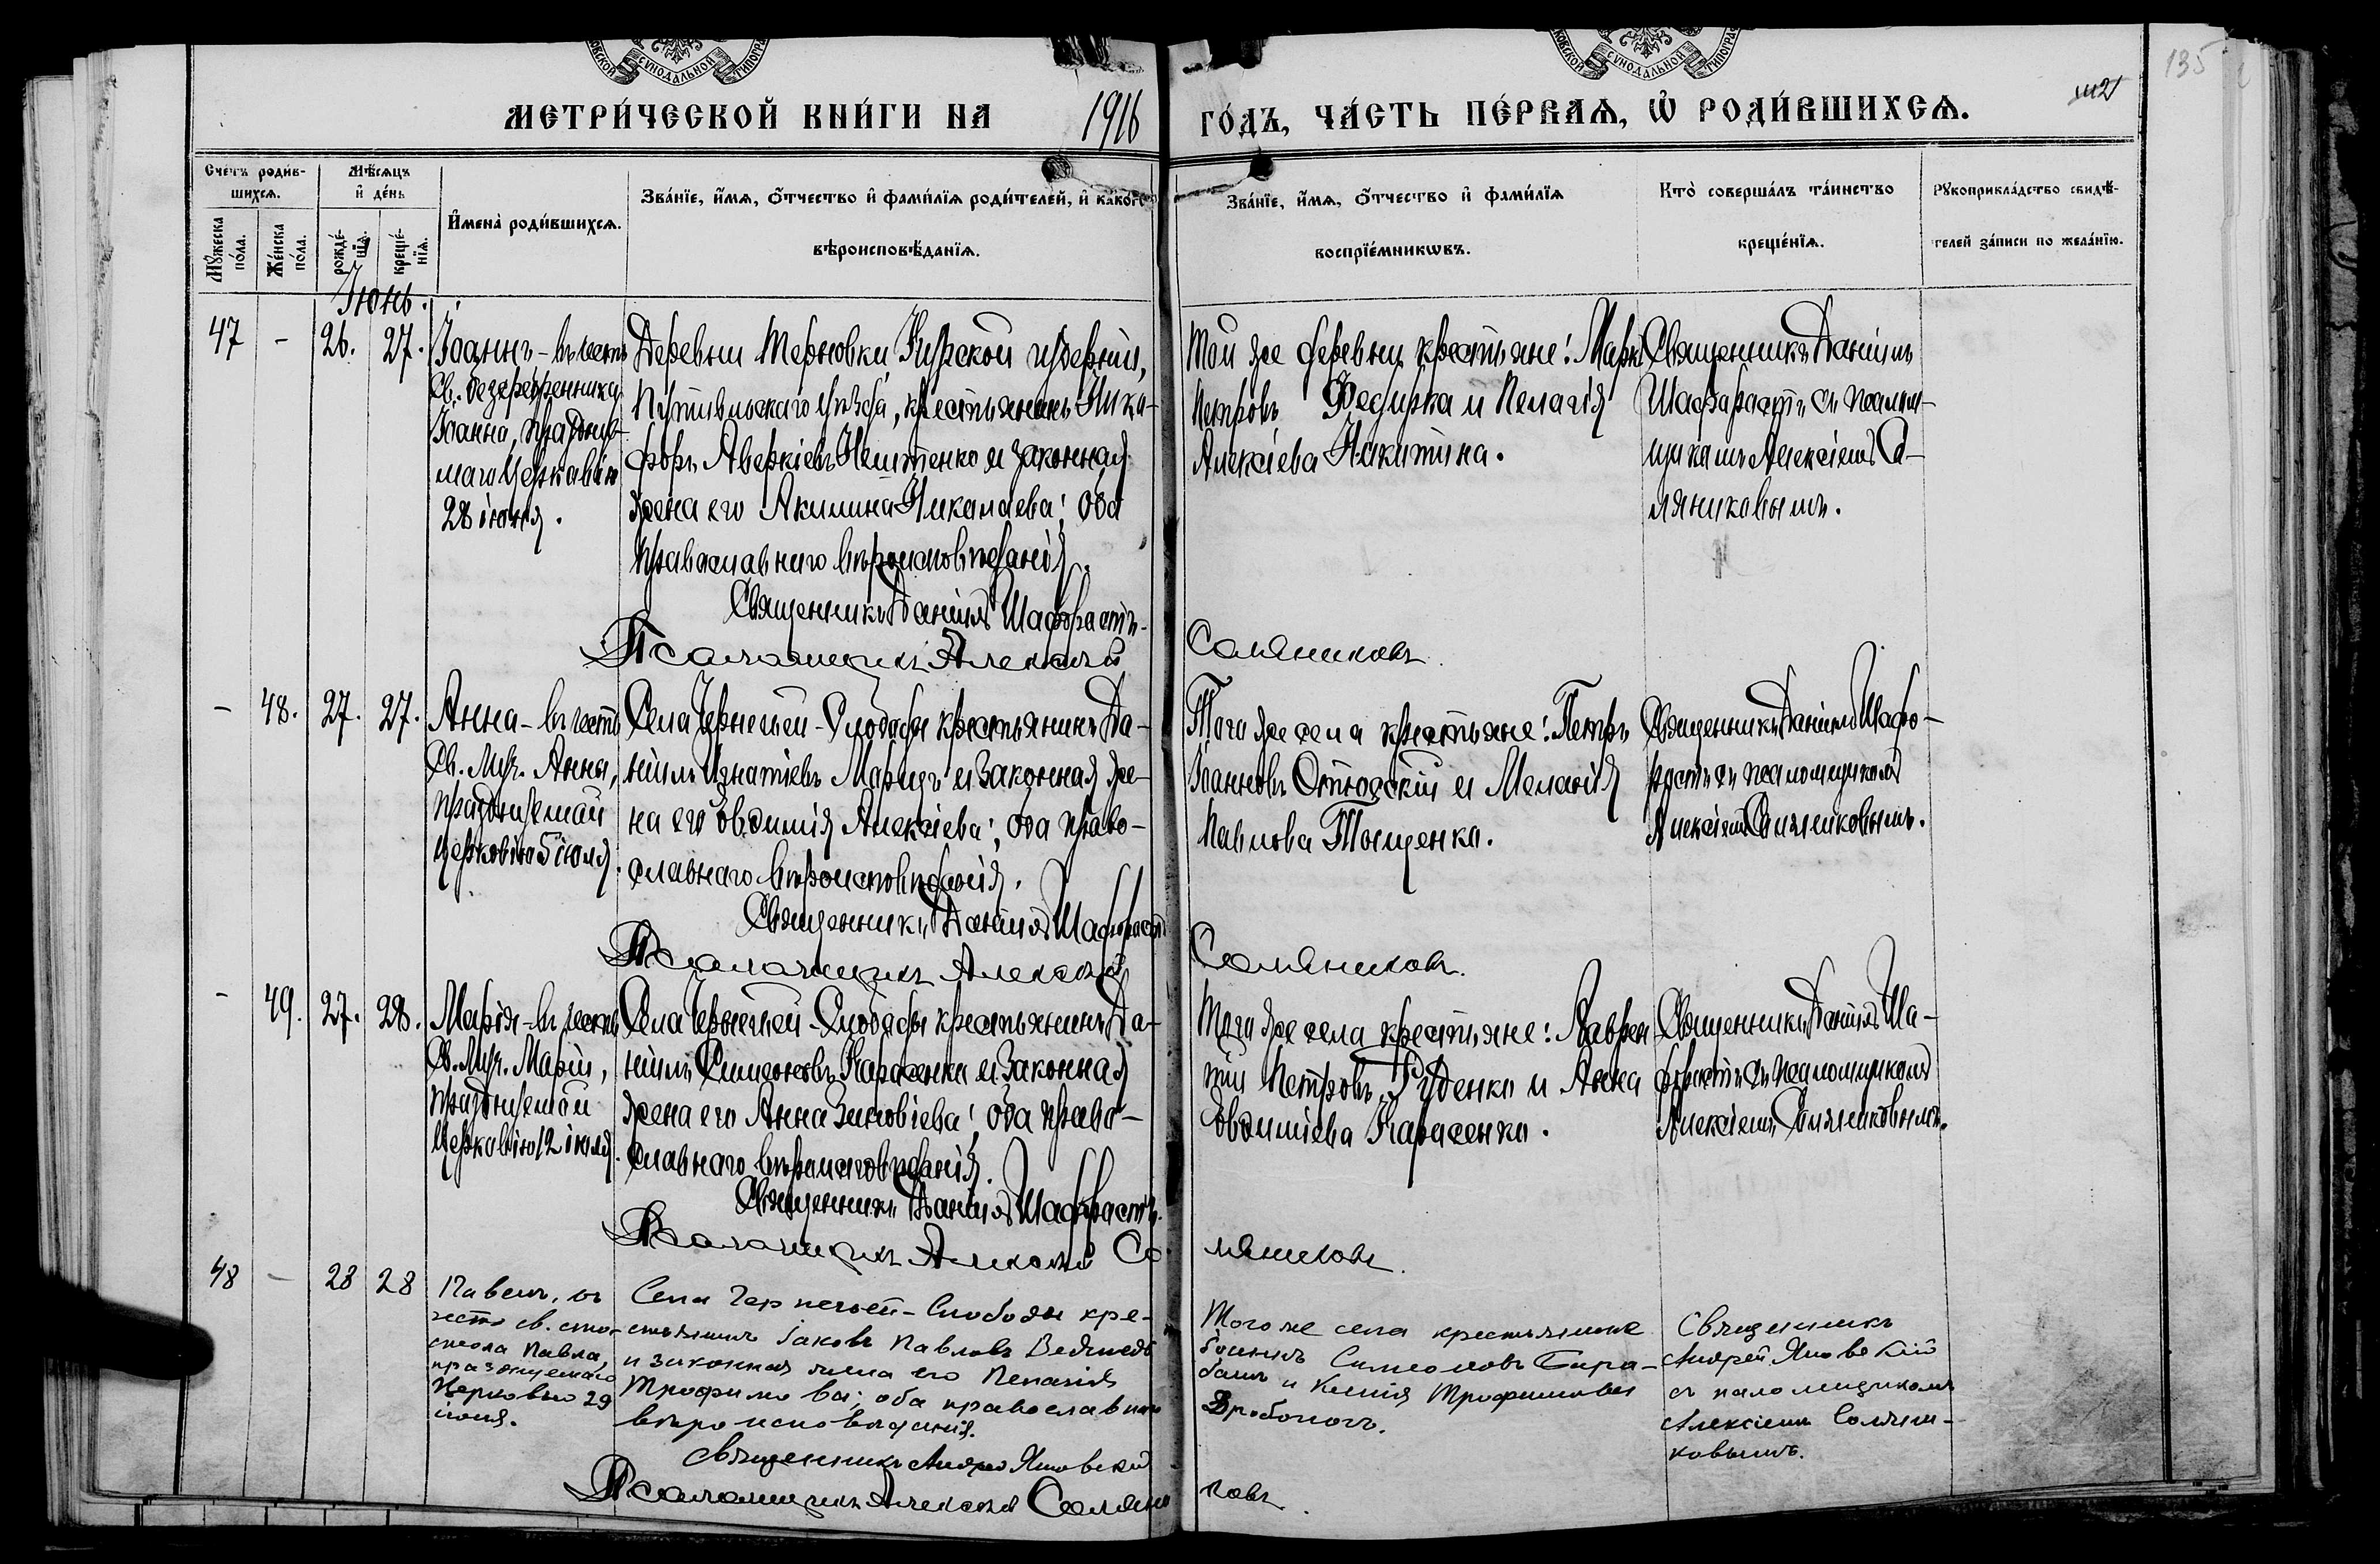 СѴНОДАЛЬНОЙ
СѴНОДАЛЬНОЙ
135
МЕТРИ́ЧЕСКОЙ КНИ́ГИ НА 1916 ГО́ДЪ, ЧА́СТЬ ПЕ́РВАѦ, Ѡ҆ РОДИ́ВШИХСѦ.
Сче́тъ роди́в-
шихсѧ.
Мꙋ́жеска по́ла.
Же́нска по́ла.
Мѣ́сѧцъ
и҆ де́нь
рожде́-
нїѧ.
креще́-
нїѧ.
И҆мена̀ роди́вшихсѧ.
Зва́нїе, и҆́мѧ, ѻ҆́тчество и҆ фами́лїѧ роди́телей, и҆ како́гѡ
вѣроисповѣ́данїѧ.
Зва́нїе, и҆́мѧ, ѻ҆́тчество и҆ фами́лїѧ
воспрїе́мникѡвъ.
Кто̀ соверша́лъ та́инство
креще́нїѧ.
Рꙋкоприкла́дство свидѣ́-
телей за́писи по жела́нїю.
Іюнь.
47 - 26. 27.
Іоаннъ - въ честь
Св. безсребренника
Іоанна, празднуе-
маго Церковію
28 іюня.
Деревни Терновки Курской губерніи,
Путивльскаго уѣзда, крестьянинъ Ники-
форъ Аверкіевъ и законная
жена его Акилина Николаева; оба
православнаго вѣроисповѣданія.
Священникъ Даніилъ Шафрастъ.
Псаломщикъ Алексѣй Соляниковъ.
Той же деревни крестьяне: Маркъ
Петровъ Федирка и Пелагія
Алексіева Никитина.
Священникъ Даніилъ
Шафрастъ съ псалом-
щикомъ Алексіемъ Со-
ляниковымъ.
- 48. 27. 27.
Анна - въ честь
Св. Муч. Анны,
празднуемой
Церковію 5 іюля.
Села Чернечьей-Слободы крестьянинъ Да-
ніилъ Игнатіевъ и законная же-
на его Евдокія Алексіева; оба право-
славнаго вѣроисповѣданія.
Священникъ Даніилъ Шафрастъ
Псаломщикъ Алексѣй Соляниковъ.
Того же села крестьяне: Петръ
Іоанновъ и Меланія
Павлова Тыщенко.
Священникъ Даніилъ Шаф-
растъ съ псаломщикомъ
Алексіемъ Соляниковымъ.
- 49. 27. 28.
Марія - въ честь
Св. Муч. Маріи,
празднуемой
Церковію 12 іюля.
Села Чернечьей-Слободы крестьянинъ Да-
ніилъ Симеоновъ Карасенко и законная
жена его Анна Зиновіева; оба право-
славнаго вѣроисповѣданія.
Священникъ Даніилъ Шафрастъ.
Псаломщикъ Алексѣй Соляниковъ.
Того же села крестьяне: Лаврен-
тій Петровъ Руденко и Анна
Евдокіева Карасенко.
Священникъ Даніилъ Ша-
фрастъ съ псаломщикомъ
Алексіемъ Соляниковымъ.
48 - 28 28
Павелъ, въ
честь св. апо-
стола Павла,
празднуемаго
Церковью 29
іюня.
Села Чернечьей-Слободы кре-
стьянинъ Іаковъ Павловъ Ведмедь
и законная жена его Пелагія
Трофимова; оба православнаго
вѣроисповѣданія.
Священникъ Андрей Яновскій
Псаломщикъ Алексѣй Соляниковъ.
Того же села крестьяне
Симеоновъ Бара-
банъ и Ксенія Трофимова
Дробоногъ.
Священникъ
Андрей Яновскій
съ псаломщикомъ
Алексіемъ Соляни-
ковымъ.